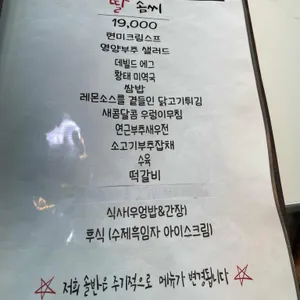 딸 솜씨
19,000
현미크림스프
영양부추 샐러드
데빌드 에그
황태 미역국
쌈밥
레몬소스를 곁들인 닭고기튀김
새콤달콤 우렁이무침
연근부추새우전
소고기부추잡채
수육
떡갈비
식사(우엉밥&간장)
후식 (수제흑임자 아이스크림)
저희 솔반은 주기적으로 메뉴가 변경됩니다